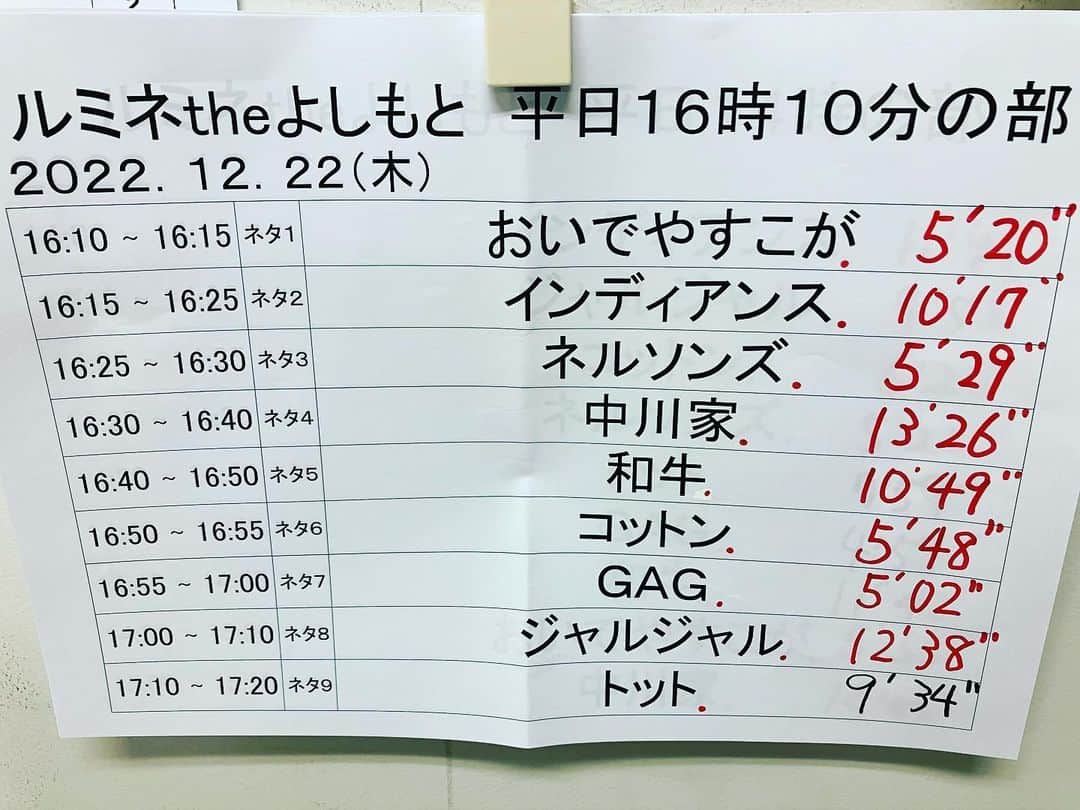 ルミネtheよしもと 平日16時10分の部
2022. 12. 22(木)
16:10 ~ 16:15 ネタ1 おいでやすこが. 5'20"
16:15 ~ 16:25 ネタ2 インディアンス. 10'17"
16:25 ~ 16:30 ネタ3 ネルソンズ. 5'29"
16:30 ~ 16:40 ネタ4 中川家. 13'26"
16:40 ~ 16:50 ネタ5 和牛. 10'49"
16:50 ~ 16:55 ネタ6 コットン. 5'48"
16:55 ~ 17:00 ネタ7 GAG. 5'02"
17:00 ~ 17:10 ネタ8 ジャルジャル. 12'38"
17:10 ~ 17:20 ネタ9 トット. 9'34"